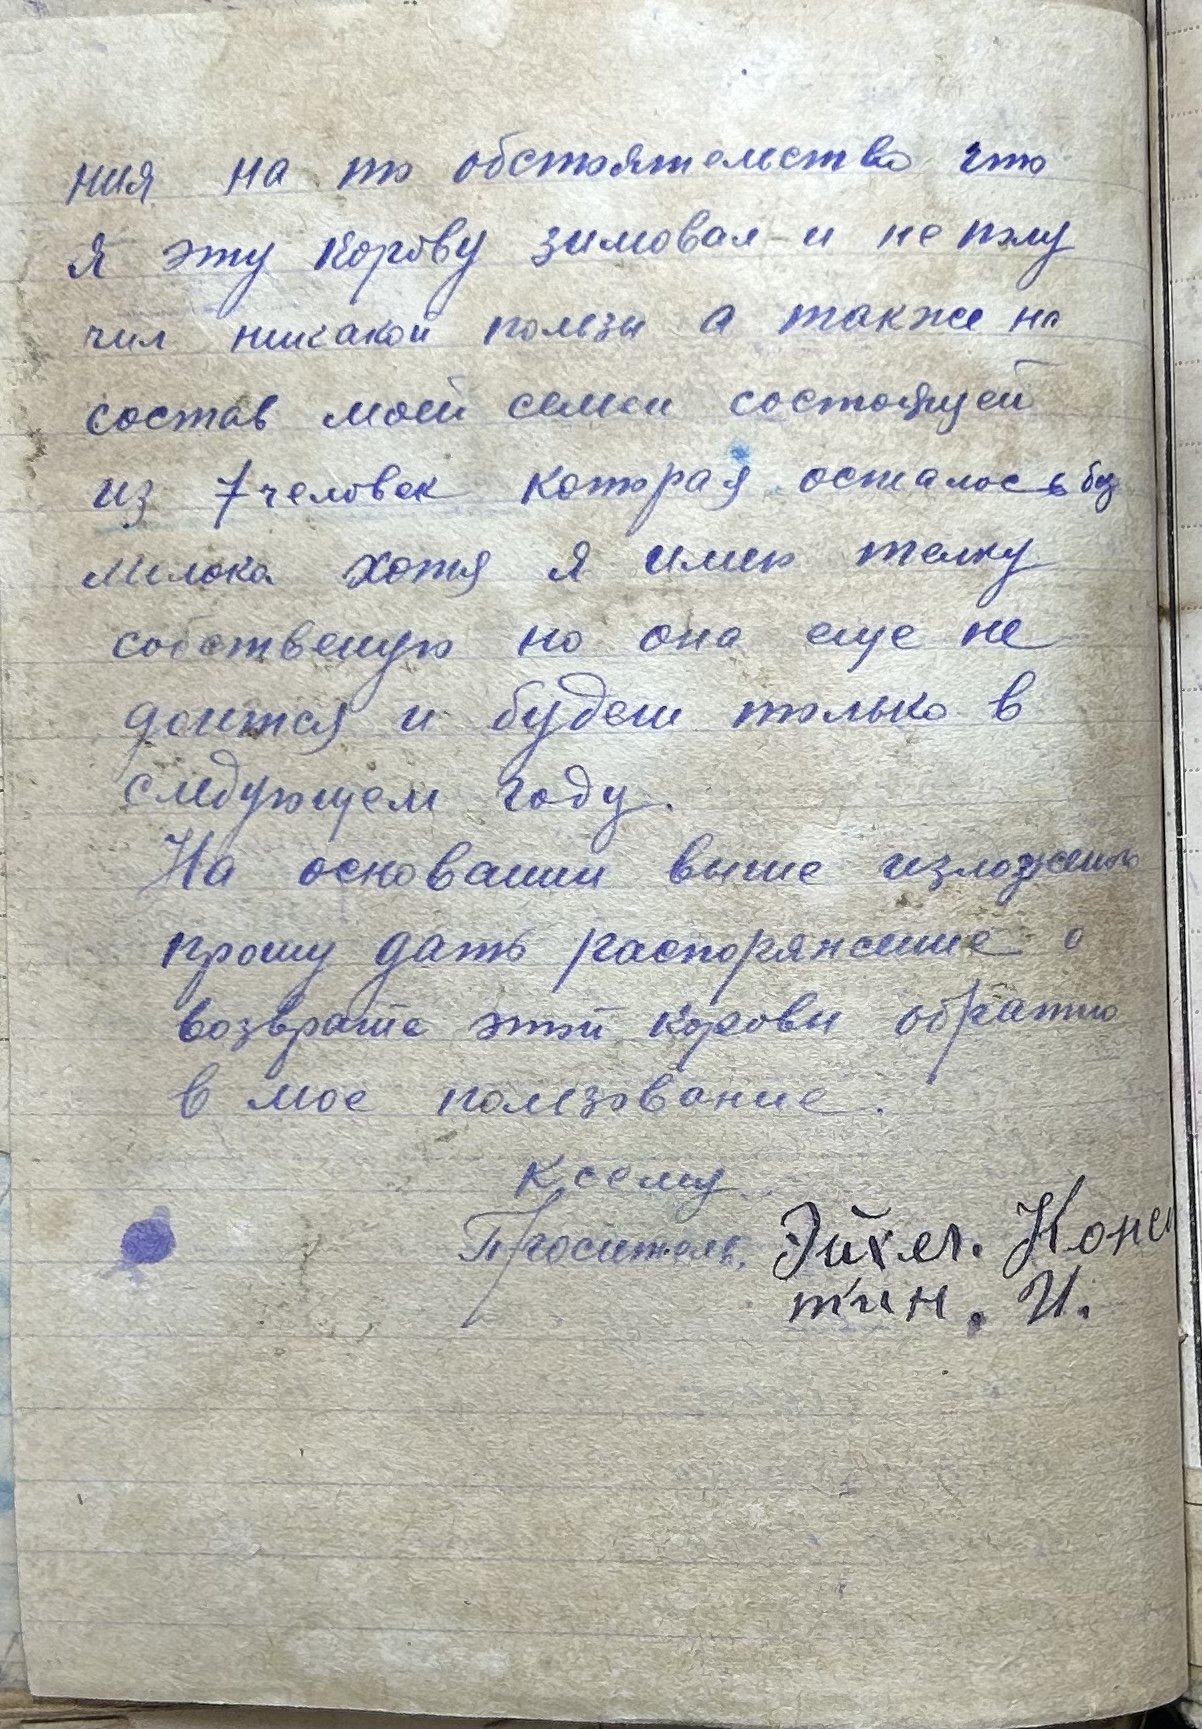 ния на то обстоятельство что
я эту корову зимовал и не полу
чил никакой ползы а также на
состав моей семеи состоящей
из 7 человек которая осталось без
молока хотя я имею телку
собственую но она еще не
доится и будет только в
следующем году.
На основании выше изложеного
прошу дать распоряжение о
возврате этой коровы обратно
в мое ползование.
К сему
Проситель. Эйхел. Конс
тин. И.